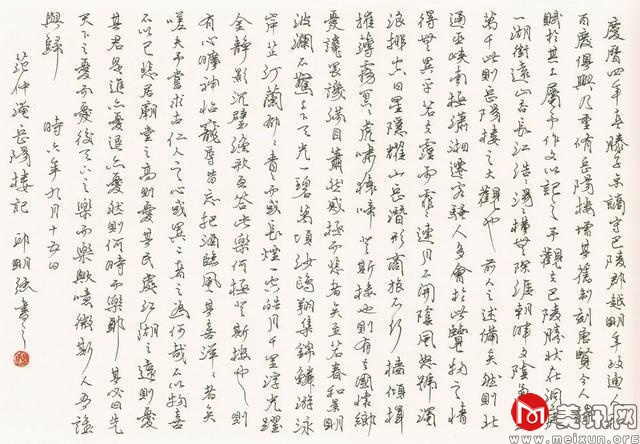 慶曆四年春滕子京謫守巴陵郡越明年政通人和
百廢俱興乃重修岳陽樓增其舊制刻唐賢今人詩
賦於其上屬予作文以記之予觀夫巴陵勝狀在洞庭
一湖銜遠山吞長江浩浩湯湯橫無際涯朝暉夕陰氣象
萬千此則岳陽樓之大觀也前人之述備矣然則北
通巫峽南極瀟湘遷客騷人多會於此覽物之情
得無異乎若夫霪雨霏霏連月不開陰風怒號濁
浪排空日星隱耀山岳潛形商旅不行檣傾楫
摧薄霧冥冥虎嘯猿啼登斯樓也則有去國懷鄉
憂讒畏譏滿目蕭然感極而悲者矣至若春和景明
波瀾不驚上下天光一碧萬頃沙鷗翔集錦鱗游泳
岸芷汀蘭郁郁青青而或長煙一空皓月千里浮光躍
金靜影沉璧漁歌互答此樂何極登斯樓也則
有心曠神怡寵辱皆忘把酒臨風其喜洋洋者矣
嗟夫予嘗求古仁人之心或異二者之為何哉不以物喜
不以己悲居廟堂之高則憂其民處江湖之遠則憂
其君是進亦憂退亦憂然則何時而樂耶其必曰先
天下之憂而憂後天下之樂而樂歟噫微斯人吾誰
與歸 時六年九月十五日
范仲淹岳陽樓記 邱明強書
美讯网
www.meixun.org